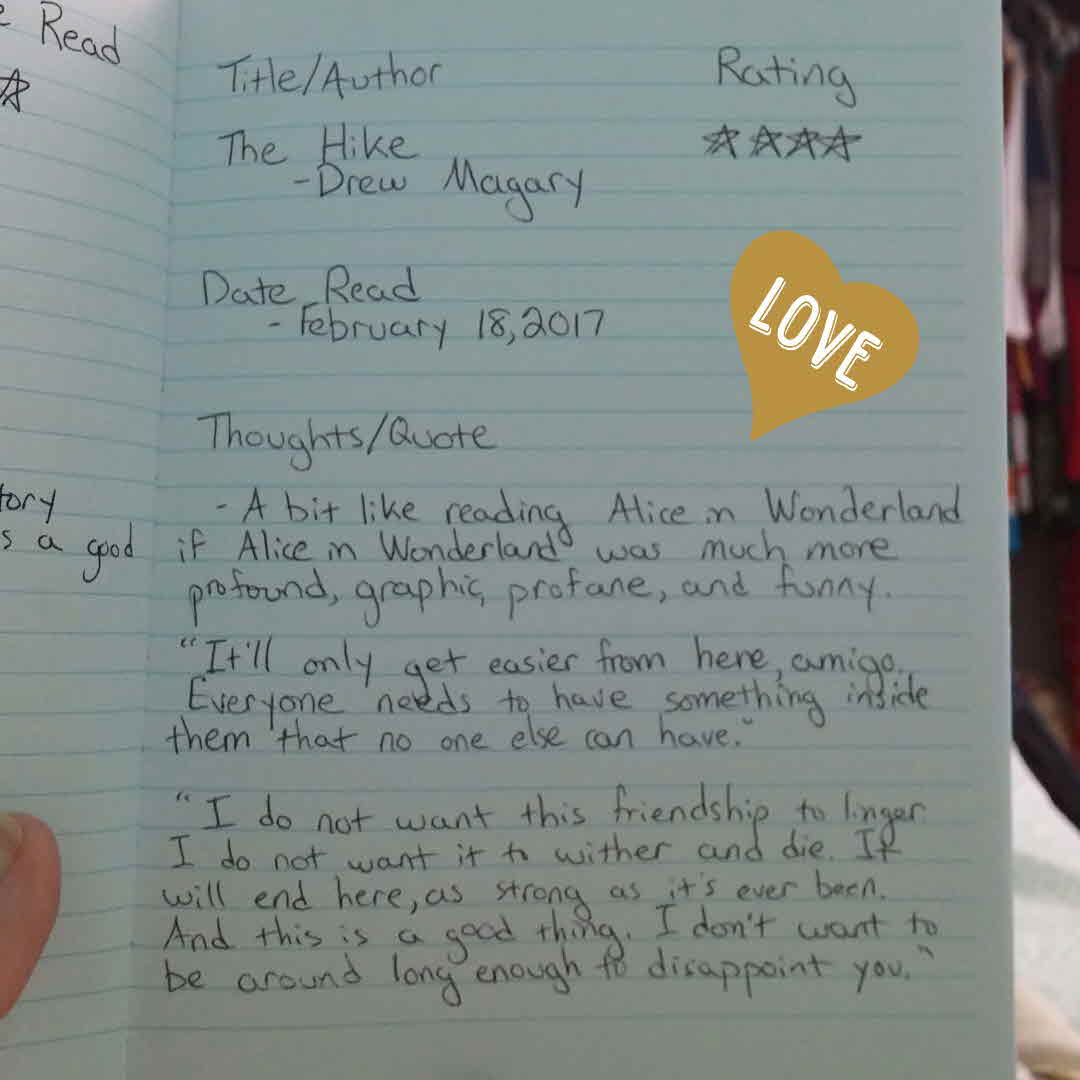 Read
Title/Author Rating
The Hike ☆☆☆☆
-Drew Magary
Date Read
- February 18, 2017
LOVE
Thoughts/Quote
tory
s a good
- A bit like reading Alice in Wonderland
if Alice in Wonderland was much more
profound, graphic, profane, and funny.
"It'll only get easier from here, amigo.
Everyone needs to have something inside
them that no one else can have."
"I do not want this friendship to linger.
I do not want it to wither and die. It
will end here, as strong as it's ever been.
And this is a good thing. I don't want to
be around long enough to disappoint you."